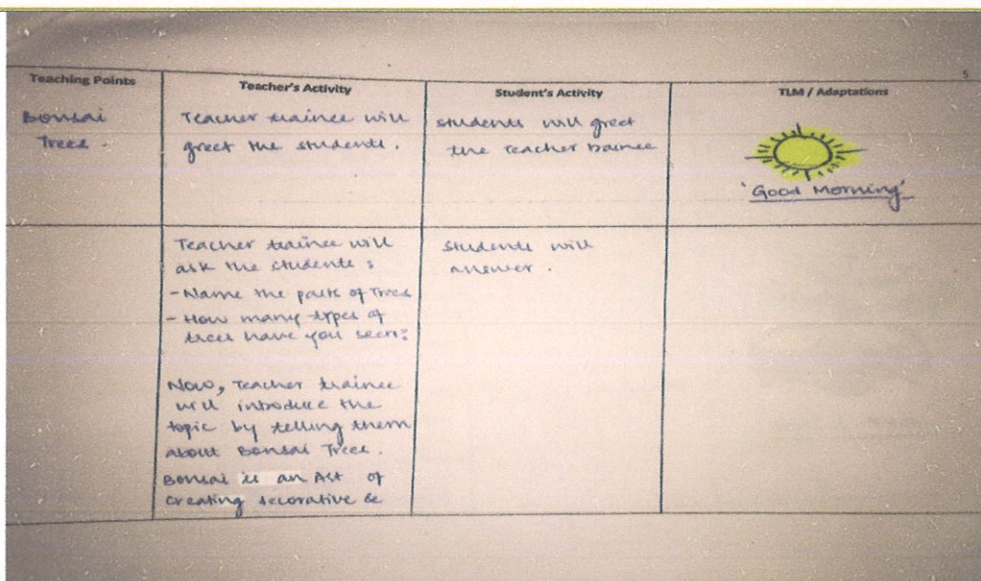 5
Teaching Points
Teacher's Activity
Student's Activity
TLM / Adaptations
Bonsai
Trees.
Teacher trainee will
greet the students.
students will greet
the teacher trainee
'Good Morning'
Teacher trainee will
ask the students :
- Name the parts of Trees
- How many types of
trees have you seen?
Now, Teacher trainee
will introduce the
topic by telling them
about Bonsai Trees.
Bonsai is an Art of
creating decorative &
Students will
answer.